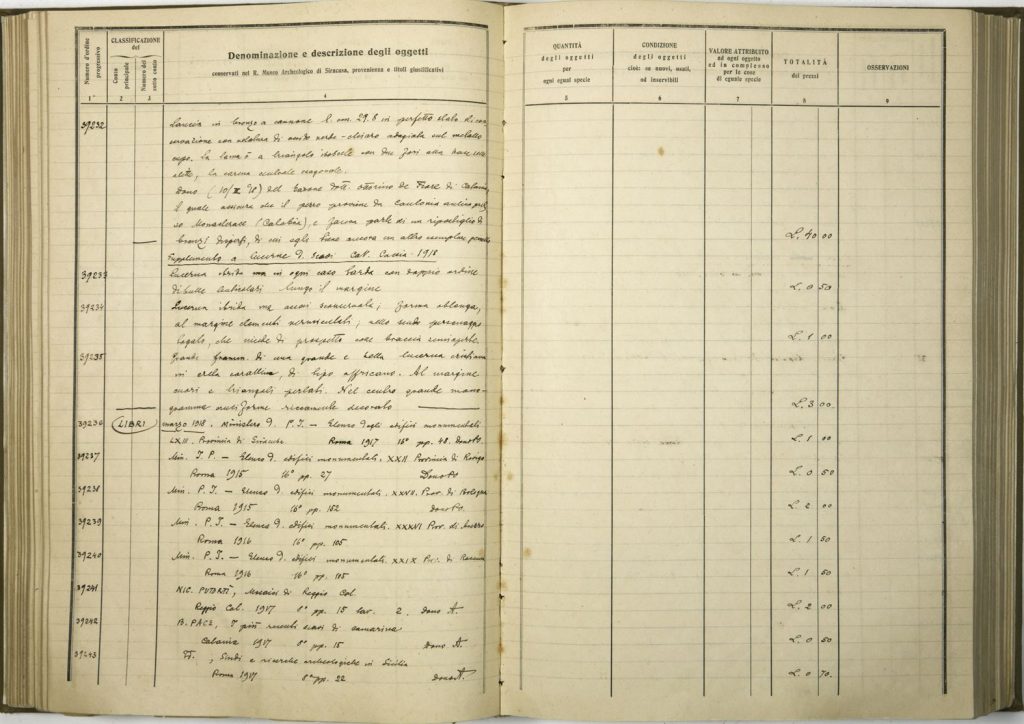 Numero d'ordine progressivo
CLASSIFICAZIONE del
Conto principale
Numero del sotto conto
Denominazione e descrizione degli oggetti
conservati nel R. Museo Archeologico di Siracusa, provenienza e titoli giustificativi
QUANTITÀ degli oggetti per ogni egual specie
CONDIZIONE degli oggetti cioè: se nuovi, usati, od inservibili
VALORE ATTRIBUITO ad ogni oggetto ed in complesso per le cose di eguale specie
TOTALITÀ dei prezzi
OSSERVAZIONI
1 2 3 4 5 6 7 8 9
39232 Lancia in bronzo a cannone l. cm. 29.6 in perfetto stato di con
servazione con velatura di ossido verde-chiaro adagiata sul metallo
cupo. La lama è a triangolo isoscele con due fori alla base delle
alette, la carena centrale esagonale.
Dono (10/III 18) del Barone Dott. Ottorino de Fiore di Catania,
il quale assicura che il pezzo proviene da Caulonia antica
so Monasterace (Calabria) e faceva parte di un ripostiglio di
bronzi dispersi, di cui egli tiene ancora un altro esemplare L. 40 00
Supplemento a lucerne d. Scavi Cat. 1918
39233 Lucerna ibrida ma in ogni caso tarda con doppio ordine
di bulle lungo il margine L. 0 50
39234 Lucerna ibrida ma assai sconservata; forma oblunga,
al margine elementi vermiculati; nello scudo personaggio
togato, che siede di prospetto colle braccia L. 1 00
39235 Grande framm. di una grande e bella lucerna cristiana
in creta corallina, di tipo affricano. Al margine
cuori e triangoli perlati. Nel centro grande mono-
gramma cruciforme riccamente decorato L. 3 00
39236 LIBRI marzo 1918. Ministero d. P. I. – Elenco degli edifici monumentali
LXII. Provincia di Siracusa Roma 1917 16° pp. 48. Dono L. 1 00
39237 Min. I. P. – Elenco d. edifici monumentali. XXII Provincia di Rovigo
Roma 1915 16° pp. 27 Dono L. 0 50
39238 Min. P. I. – Elenco d. edifici monumentali. XXVII. Prov. di Bologna
Roma 1915 16° pp. 162 Dono L. 2 00
39239 Min. P. I. – Elenco d. edifici monumentali. XXXVI Prov. di Arezzo
Roma 1916 16° pp. 105 L. 1 50
39240 Min. P. I. – Elenco d. edifici monumentali. XXIX Prov. di Ravenna
Roma 1916 16° pp. 105 L. 1 50
39241 NIC. PUTORTÌ, Mosaici di Reggio Cal.
Reggio Cal. 1917 8° pp. 15 tav. 2. Dono A. L. 2 00
39242 B. PACE, I più recenti scavi di Camarina
Catania 1917 8° pp. 15 Dono A. L. 0 50
39243 Id., Studi e ricerche archeologiche in Sicilia
Roma 1917 8° pp. 22 Dono A. L. 0 70.